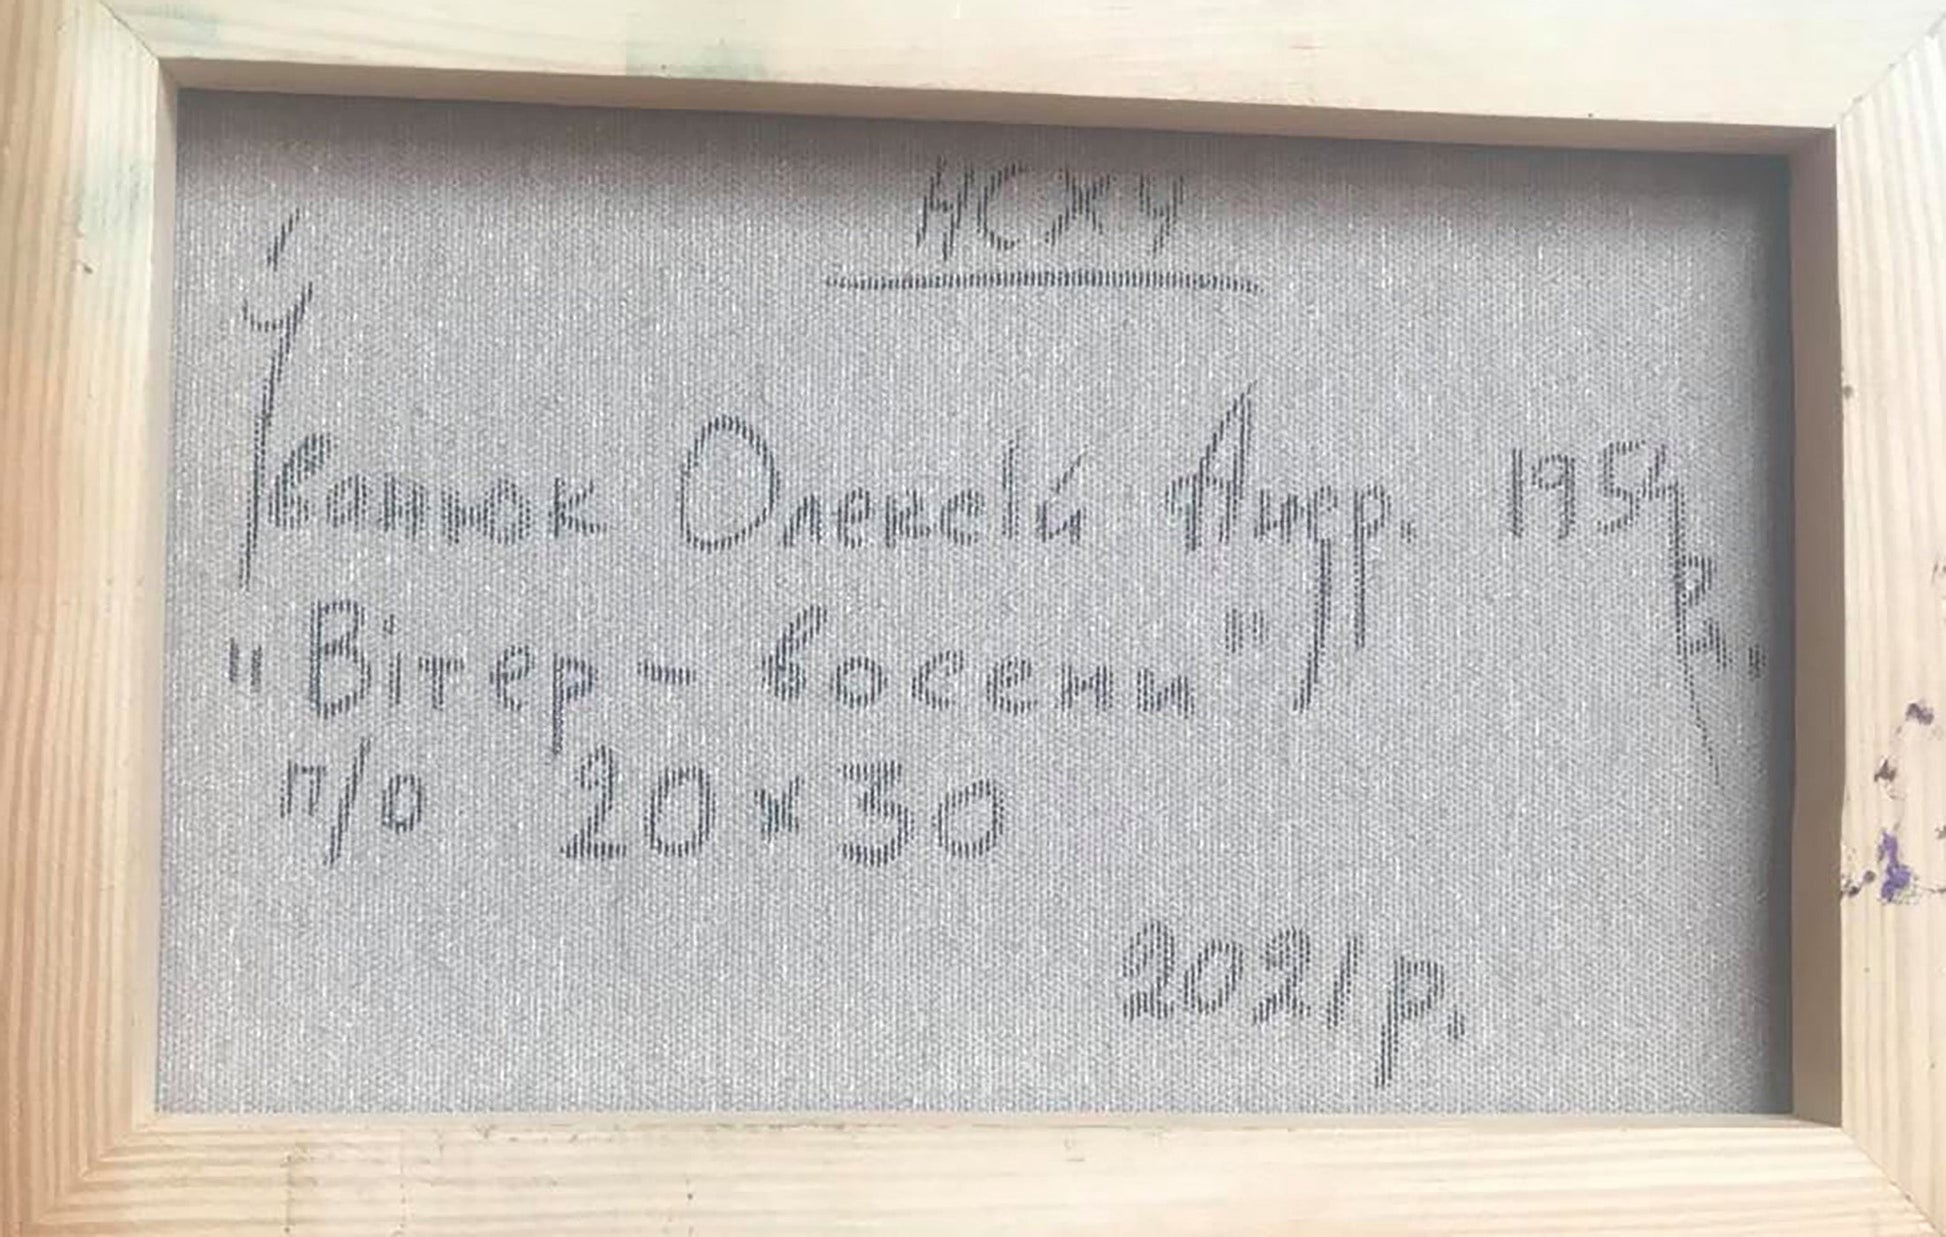 НСХУ
Іванюк Олексій Андр. 1954 р.н.
"Вітер - восени"
п/о 20 х 30
2021 р.